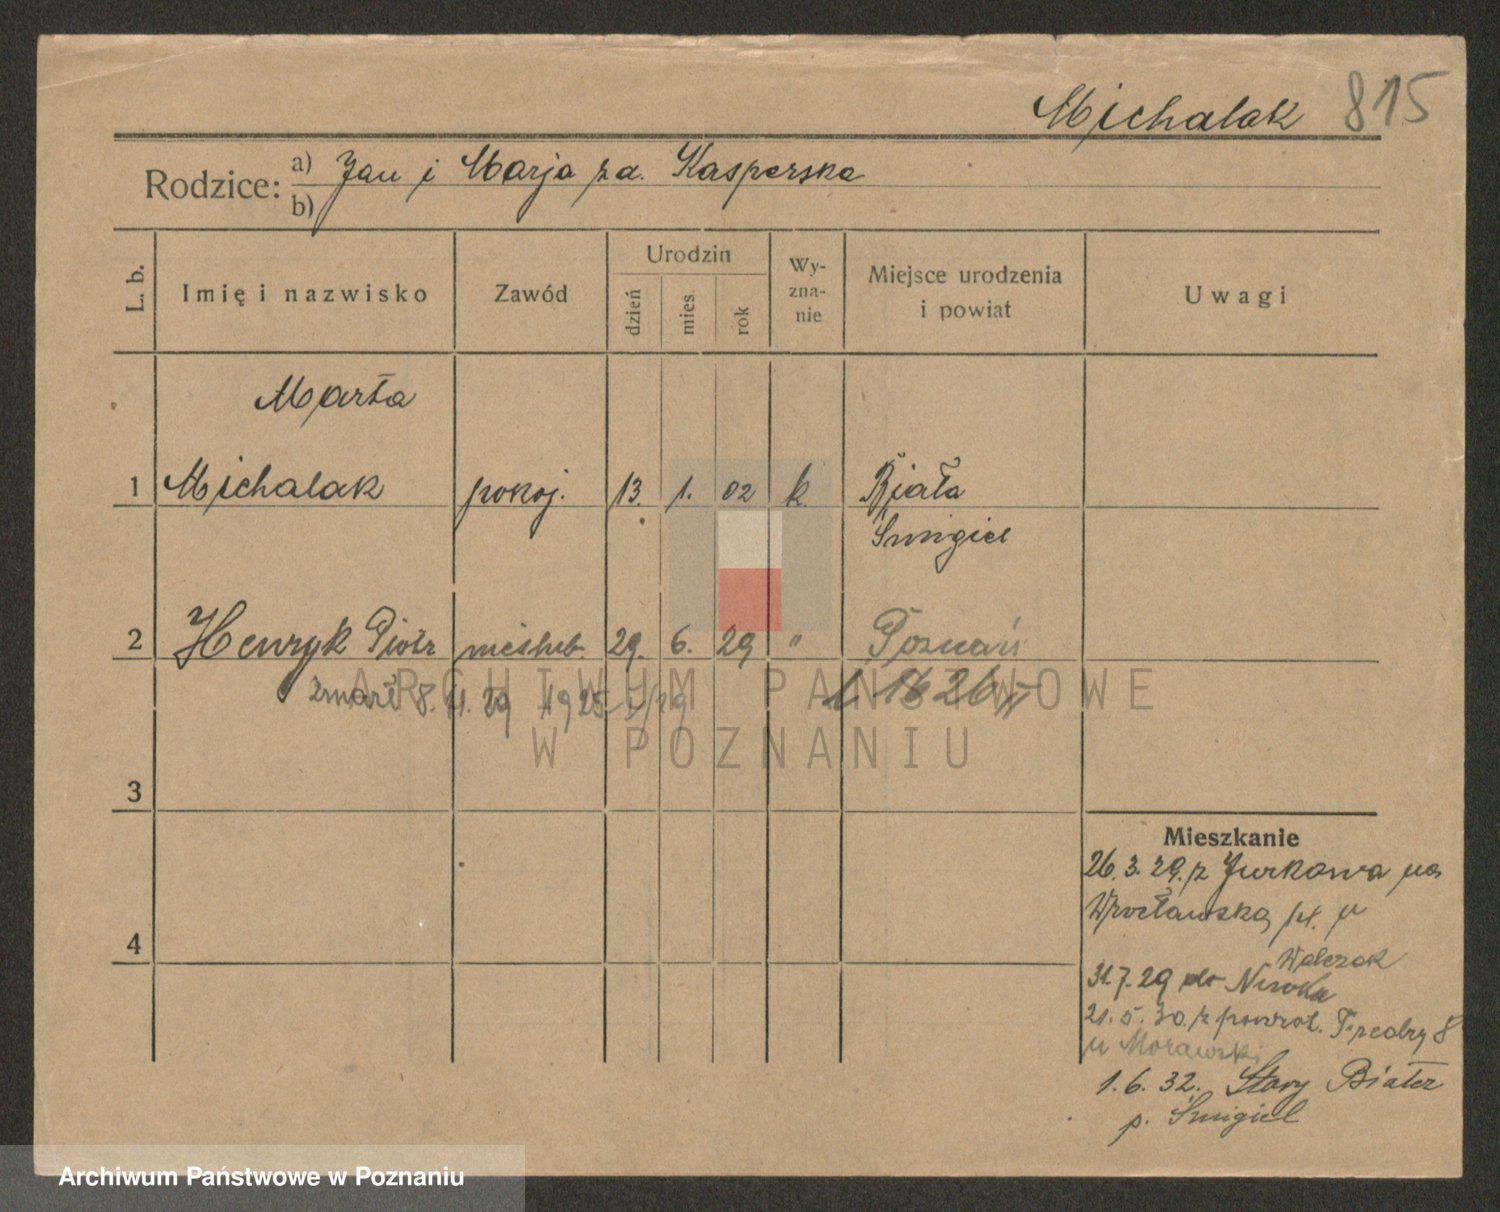 Michalak 815
Rodzice: a) Jan i Marja z d. Kasperska
b)
L. b. Imię i nazwisko Zawód Urodzin dzień mies. rok Wy-zna-nie Miejsce urodzenia i powiat Uwagi
Marta
1 Michalak pokoj. 13. 1. 02 k. Biała
Śmigiel
2 Henryk Piotr nieślub. 29. 6. 29 " Poznań
zmarł 8. 11. 29 1925
3
4
Mieszkanie
26. 3. 29. z Jurkowa na
Wrocławską u
Walczak
31.7.29 do
21. 5. 30. z powrot. Fredry 8
u Morawski
1. 6. 32. Stary Białcz
p. Śmigiel
ARCHIWUM PAŃSTWOWE
W POZNANIU
Archiwum Państwowe w Poznaniu